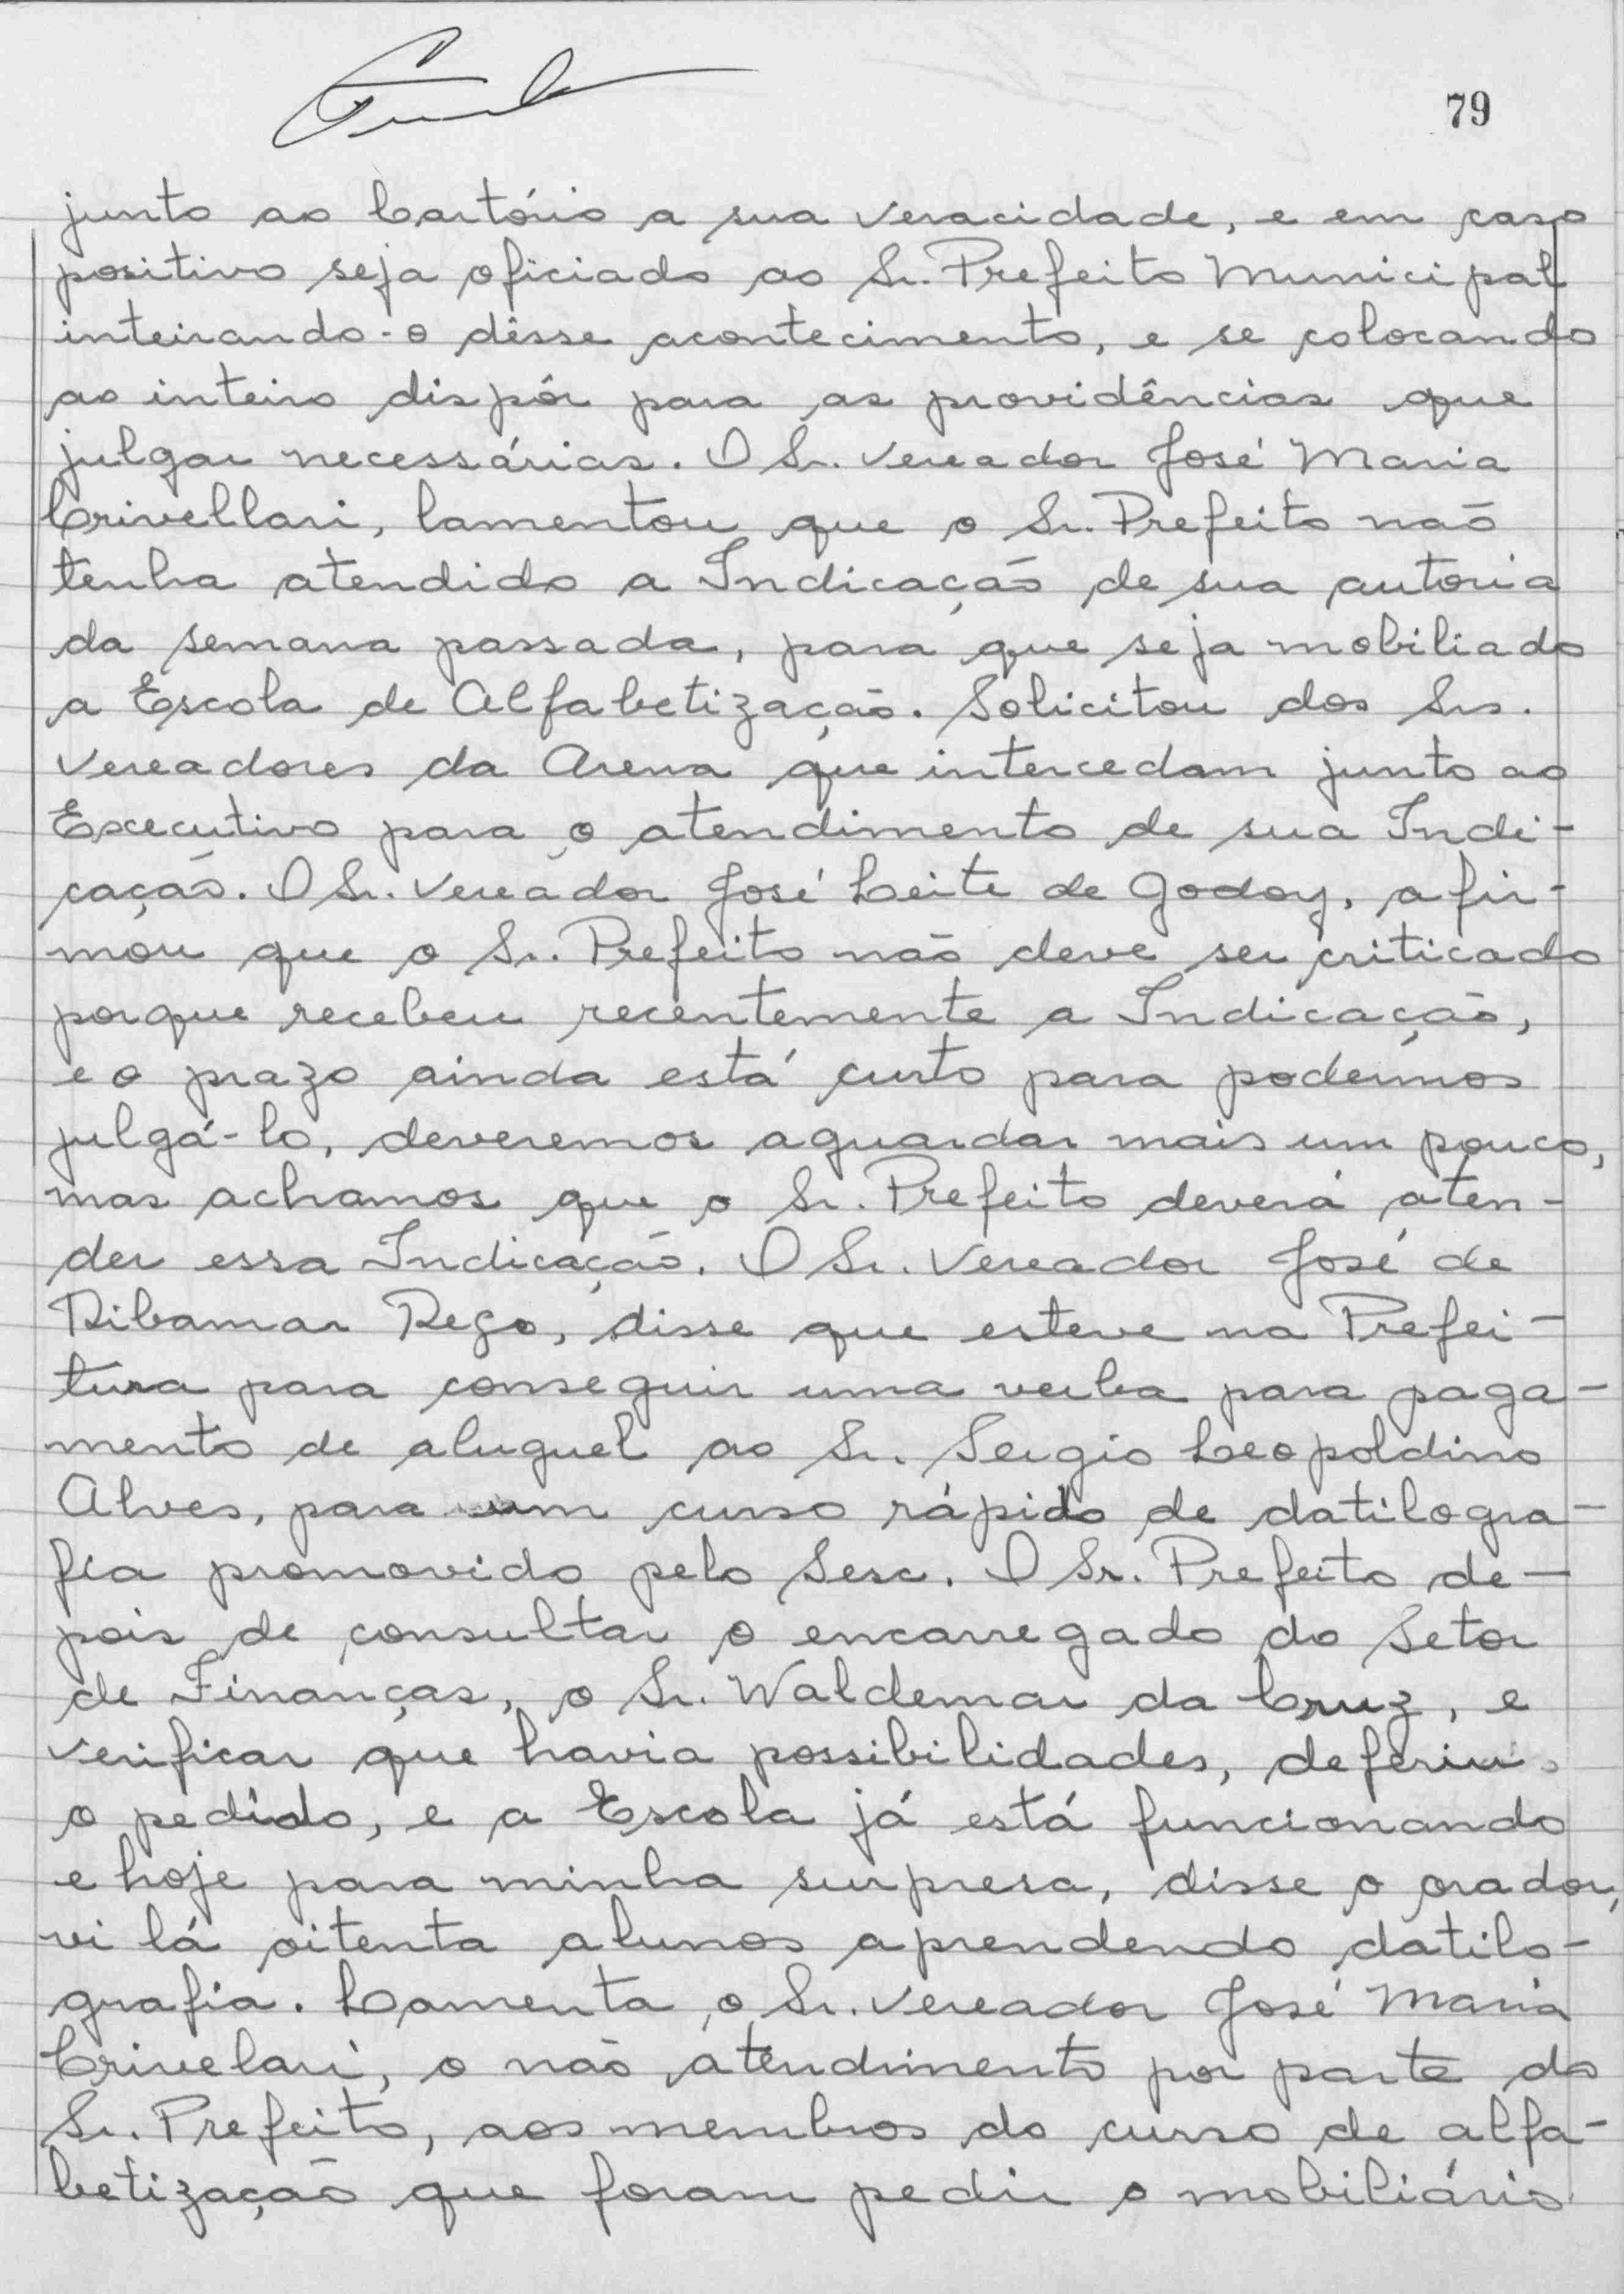 79
junto ao Cartório a sua veracidade, e em caso
positivo seja oficiado ao Sr. Prefeito Municipal
inteirando-o dêsse acontecimento, e se colocando
ao inteiro dispôr para as providências que
julgar necessárias. O Sr. Vereador José Maria
Crivellari, lamentou que o Sr. Prefeito não
tenha atendido a Indicação de sua autoria
da semana passada, para que seja mobiliado
a Escola de Alfabetização. Solicitou dos Srs.
Vereadores da Arena que intercedam junto ao
Executivo para o atendimento de sua Indi-
cação. O Sr. Vereador José Leite de Godoy, afir-
mou que o Sr. Prefeito não deve ser criticado
porque recebeu recentemente a Indicação,
e o prazo ainda está curto para podermos
julgá-lo, deveremos aguardar mais um pouco,
mas achamos que o Sr. Prefeito deverá aten-
der essa Indicação. O Sr. Vereador José de
Ribamar Rego, disse que esteve na Prefei-
tura para conseguir uma verba para paga-
mento de aluguel ao Sr. Sergio Leopoldino
Alves, para um curso rápido de datilogra-
fia promovido pelo Sesc. O Sr. Prefeito de-
pois de consultar o encarregado do Setor
de Finanças, o Sr. Waldemar da Cruz, e
verificar que havia possibilidades, deferiu
o pedido, e a Escola já está funcionando
e hoje para minha surpresa, disse o orador,
vi lá oitenta alunos aprendendo datilo-
grafia. Lamenta o Sr. Vereador José Maria
Crivelari, o não atendimento por parte do
Sr. Prefeito, aos membros do curso de alfa-
betização que foram pedir o mobiliário